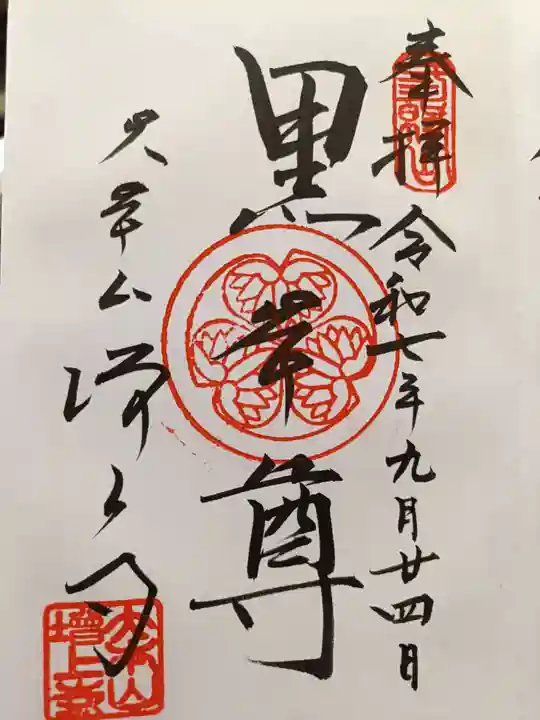 奉拝
令和七年九月廿四日
黒本尊
大本山增上寺
大本山
增上寺